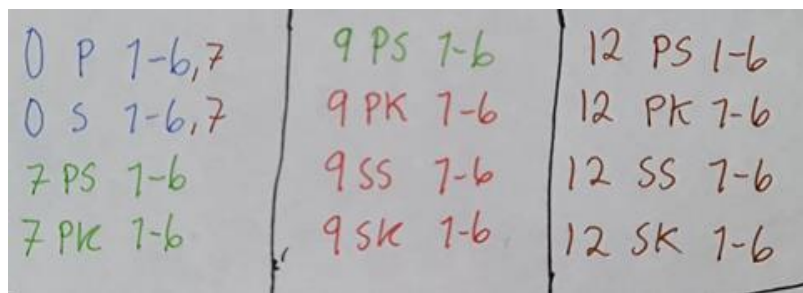 0 P 1-6,7
0 S 1-6,7
7 PS 1-6
7 PK 1-6
9 PS 1-6
9 PK 1-6
9 SS 1-6
9 SK 1-6
12 PS 1-6
12 PK 1-6
12 SS 1-6
12 SK 1-6